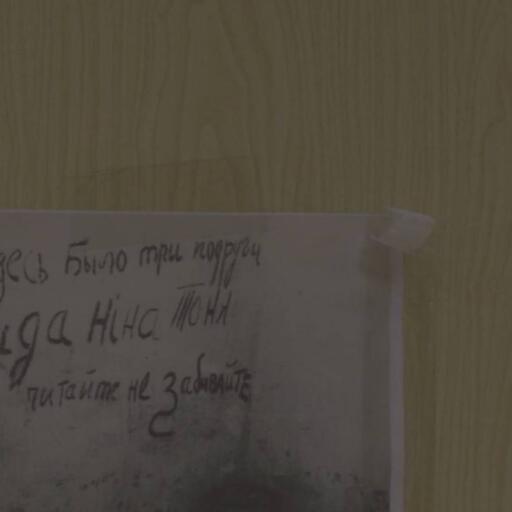 десь Было три подруги
ида Ніна Тоня
читайте не забывайте